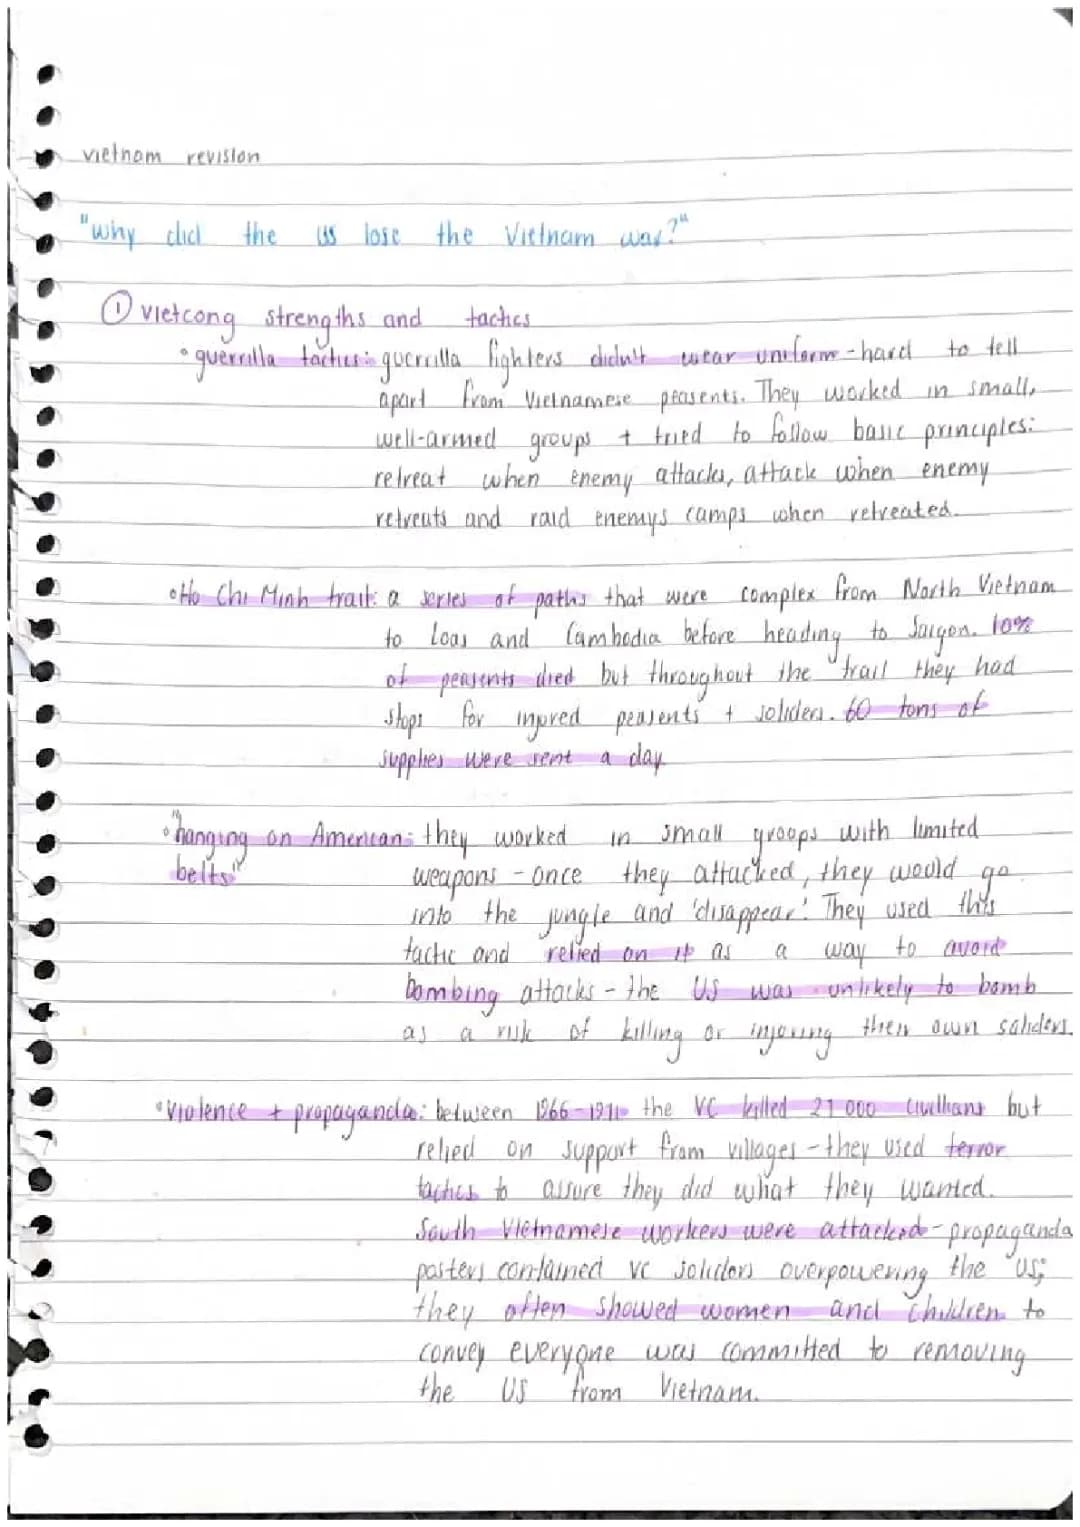 vietnam revision
"why did the us lose the Vietnam war?"
① vietcong strengths and tactics
• guerrilla tactics: guerrilla fighters didn't wear uniform - hard to tell
apart from Vietnamese peasents. They worked in small,
well-armed groups + tried to follow basic principles:
retreat when enemy attacks, attack when enemy
retreats and raid enemys camps when retreated.
• Ho Chi Minh trail: a series of paths that were complex from North Vietnam
to Loas and Cambodia before heading to Saigon. 10%
of peasents died but throughout the trail they had
stops for injured peasents + soliders. 60 tons of
supplies were sent a day
• "hanging on American: they worked in small groups with limited
belts" weapons - once they attacked, they would go
into the jungle and 'disappear'. They used this
tactic and relied on it as a way to avoid
bombing attacks - the US was unlikely to bomb
as a risk of killing or injuring their own soliders.
• Violence + propaganda: between 1966-1971 the VC killed 27 000 civilians but
relied on support from villages - they used terror
tactics to assure they did what they wanted.
South Vietnamese workers were attacked - propaganda
posters contained VC soliders overpowering the US;
they often showed women and children to
convey everyone was committed to removing
the US from Vietnam.